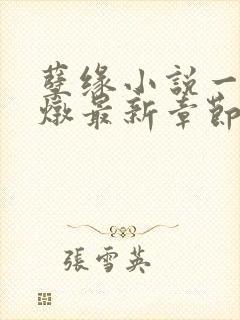 孽缘小説一
燉最新章節
張雪英